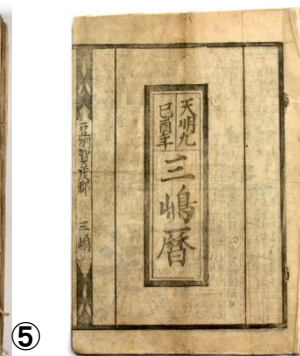 天明九
己酉年
三嶋暦
豆州賀茂郡 三嶋
⑤